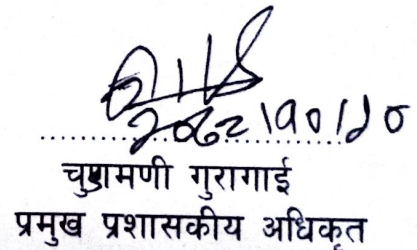 २०८२।१०।२०
चुडामणी गुरागाई
प्रमुख प्रशासकीय अधिकृत